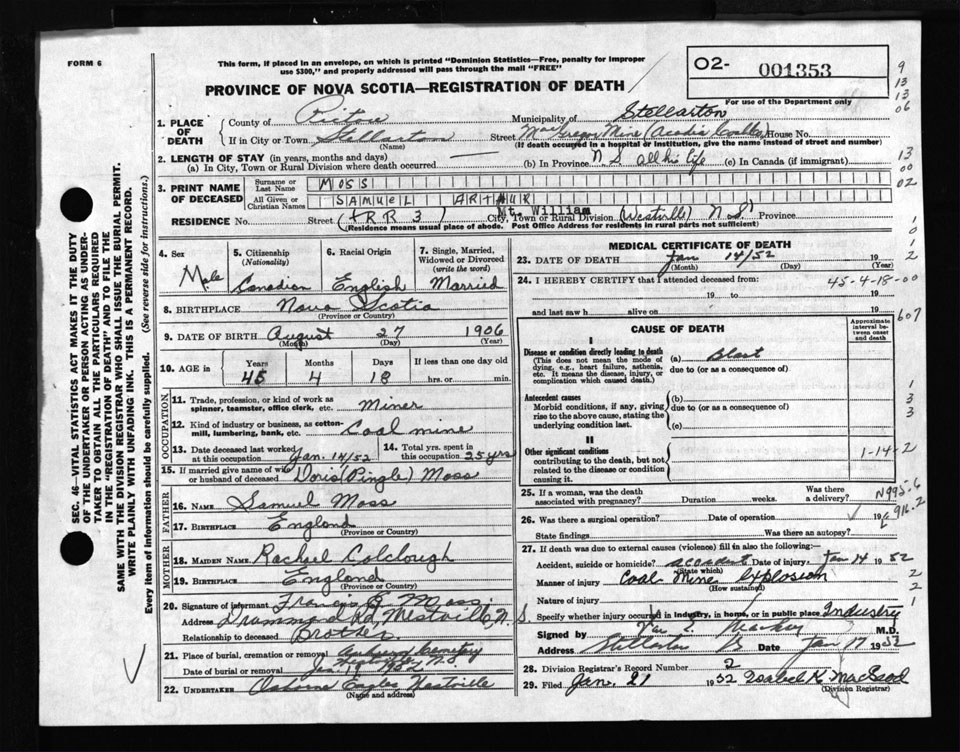 FORM 6
This form, if placed in an envelope, on which is printed "Dominion Statistics—Free, penalty for improper
use $300," and properly addressed will pass through the mail "FREE"
O2- 001353
For use of the Department only
PROVINCE OF NOVA SCOTIA—REGISTRATION OF DEATH
9
13
13
06
1. PLACE OF DEATH
County of Pictou Municipality of Stellarton
If in City or Town Stellarton (Name) Street MacGregor Mine (Acadia Coal Co) House No.
(If death occurred in a hospital or institution, give the name instead of street and number)
2. LENGTH OF STAY (in years, months and days)
(a) In City, Town or Rural Division where death occurred — (b) In Province N S all his life (c) In Canada (if immigrant)
13
00
02
3. PRINT NAME OF DECEASED
Surname or Last Name MOSS
All Given or Christian Names SAMUEL ARTHUR
RESIDENCE No. Street (RR 3) Mt. William City, Town or Rural Division (Westville) N.S. Province
(Residence means usual place of abode. Post Office Address for residents in rural parts not sufficient)
SEC. 46—VITAL STATISTICS ACT MAKES IT THE DUTY
OF THE UNDERTAKER OR PERSON ACTING AS UNDER-
TAKER TO OBTAIN ALL THE PARTICULARS REQUIRED
IN THE "REGISTRATION OF DEATH" AND TO FILE THE
SAME WITH THE DIVISION REGISTRAR WHO SHALL ISSUE THE BURIAL PERMIT.
WRITE PLAINLY WITH UNFADING INK. THIS IS A PERMANENT RECORD.
Every item of information should be carefully supplied. (See reverse side for instructions.)
4. Sex Male
5. Citizenship (Nationality) Canadian
6. Racial Origin English
7. Single, Married, Widowed or Divorced (write the word) Married
8. BIRTHPLACE Nova Scotia
(Province or Country)
9. DATE OF BIRTH August 27 1906
(Month) (Day) (Year)
10. AGE in Years 45 Months 4 Days 18 If less than one day old hrs. or min.
OCCUPATION
11. Trade, profession, or kind of work as spinner, teamster, office clerk, etc. Miner
12. Kind of industry or business, as cotton-mill, lumbering, bank, etc. Coal mine
13. Date deceased last worked at this occupation Jan. 14/52
14. Total yrs. spent in this occupation 25 yrs
15. If married give name of wife or husband of deceased Doris (Pingle) Moss
FATHER
16. NAME Samuel Moss
17. BIRTHPLACE England
(Province or Country)
MOTHER
18. MAIDEN NAME Rachael Colclough
19. BIRTHPLACE England
(Province or Country)
20. Signature of informant Francis B. Moss
Address Drummond Rd, Westville, N S
Relationship to deceased Brother.
21. Place of burial, cremation or removal Auburn Cemetery
Westville N.S.
Date of burial or removal Jan. 1952
22. UNDERTAKER Osborne Eagles Westville
(Name and address)
MEDICAL CERTIFICATE OF DEATH
23. DATE OF DEATH Jan 14/52
(Month) (Day) (Year)
24. I HEREBY CERTIFY that I attended deceased from 45-4-18-00
19 to 19
and last saw h alive on 19
607
CAUSE OF DEATH
Approximate interval between onset and death
I
Disease or condition directly leading to death (a) Blast
(This does not mean the mode of dying, e.g., heart failure, asthenia, etc. It means the disease, injury, or complication which caused death.)
due to (or as a consequence of)
Antecedent causes
Morbid conditions, if any, giving rise to the above cause, stating the underlying condition last.
(b)
due to (or as a consequence of)
(c)
II
Other significant conditions contributing to the death, but not related to the disease or condition causing it.
1-14-2
25. If a woman, was the death associated with pregnancy? Duration weeks. Was there a delivery?
N995.6
E916-2
26. Was there a surgical operation? Date of operation 19
State findings Was there an autopsy?
27. If death was due to external causes (violence) fill in also the following:—
Accident, suicide or homicide? accident Date of injury Jan 14 1952
(State which)
Manner of injury Coal Mine explosion
(How sustained)
Nature of injury
Specify whether injury occurred in industry, in home, or in public place Industry
Signed by M.D.
Address Stellarton Date Jan 17 1952
28. Division Registrar's Record Number 2
29. Filed Jan. 21 1952 Isabel K. MacLeod
(Division Registrar)